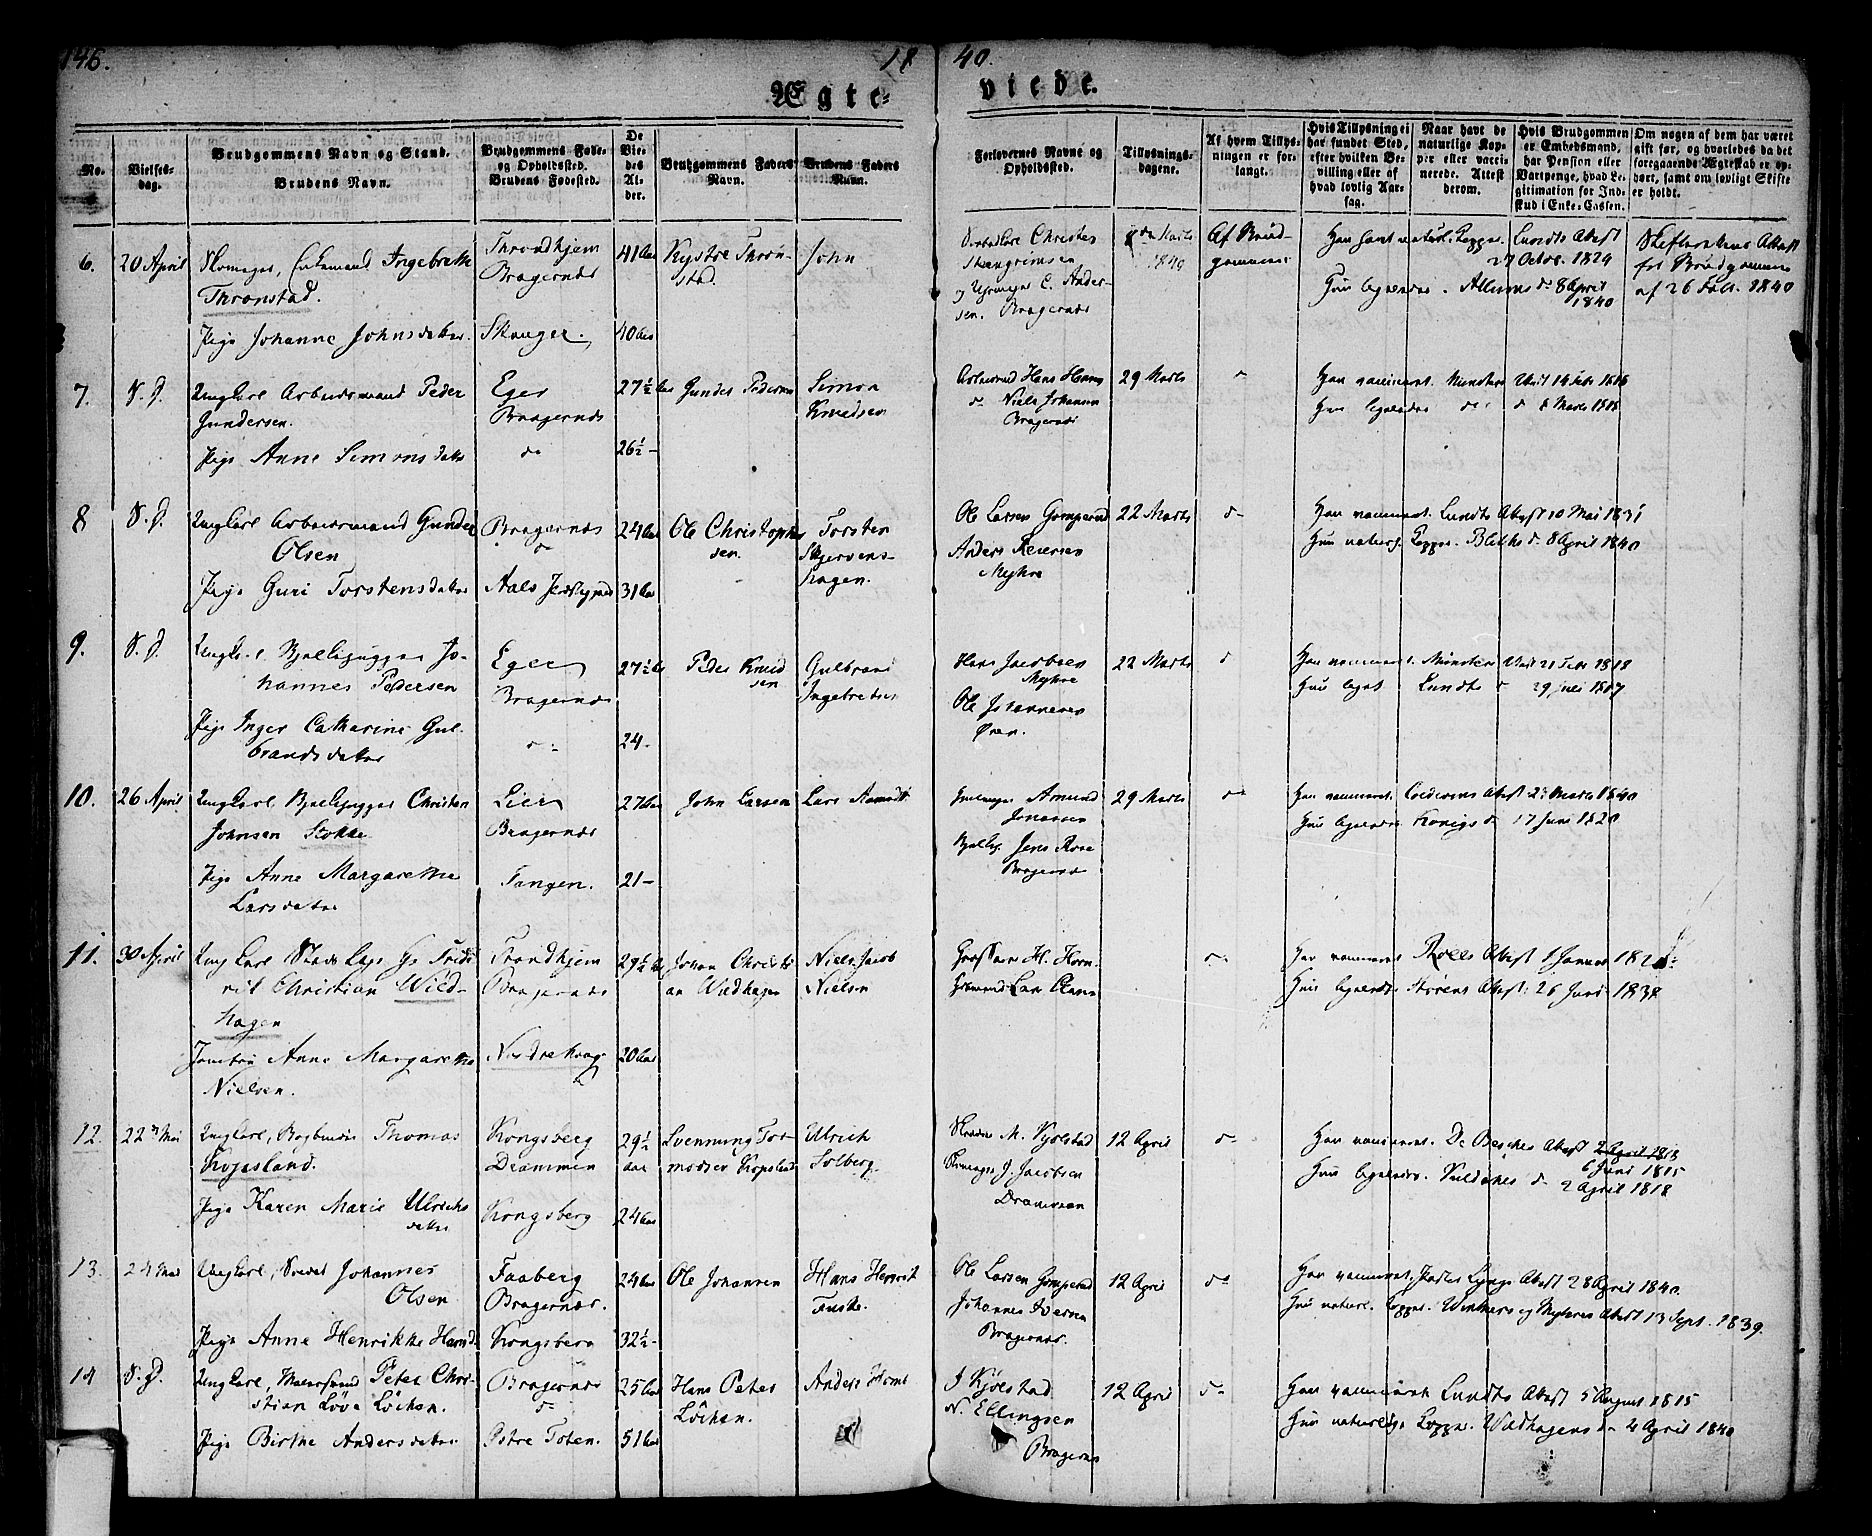 146. 18 40.
Ægte- viede.
No.
Vielses-
dag.
Brudgommens Navn og Stand.
Brudens Navn.
Brudgommens Føde-
og Opholdssted.
Brudens Fødested.
De
Vie-
des
Al-
der.
Brudgommens Faders
Navn.
Brudens Faders
Navn.
Forlovernes Navne og
Opholdssted.
Tillysnings-
dagene.
Af hvem Tillys-
ningen er for-
langt.
Hvis Tillysning ei
har fundet Sted,
efter hvilken Be-
villing eller af
hvad lovlig Aar-
sag.
Naar havt de
naturlige Kop-
per eller vacci-
nerede. Attest
derom.
Hvis Brudgommen
er Embedsmand,
har Pension eller
Vartpenge, hvad Le-
gitimation for Ind-
skud i Enke-Cassen.
Om nogen af dem har været
gift før, og hvorledes da det
foregaaende Ægteskab er op-
hørt, samt om lovligt Skifte
er holdt.
6. 20 April
Enkemand Ingebreth
Thronstad.
Pige Johanne Johnsdatter
Throndhjem
Bragernæs
Skauger.
41 Aar
40 Aar
Kystre Thron-
stad.
John
Christen
Skængrimsen
og E. Ander-
sen. Bragernæs
Marts
1840
Af Brud-
gommen
Han havt naturl. Kopper. Lundts Attest
27 Octbr. 1829
Hun ligeledes. d. 8 April
1840
Skifterettens Attest
for Brudgommen
af 26 Febr. 1840
7. S. D.
Ungkarl Arbeidsmand Peder
Gundersen.
Pige Anne Simonsdatter
Eger
Bragernæs
do
27½ Aar
26½ -
Gunder Pedersen
Simon
Knudsen
Arbeidsmd Hans Hansen
do Niels Johansen
Bragernæs
29 Marts
do
Han vaccineret. Münsters Attest 14 Febr 1816
Hun ligeledes do d. 8 Marts 1818
8 S. D.
Ungkarl Arbeidsmand Gunder
Olsen
Pige Guri Torstensdatter
Bragernæs
do
Aals Præstegjeld
24 Aar
31 Aar
Ole Christopher-
sen.
Torsten
Skjervens-
hagen.
Ole Larsen Gomperud
Anders Reiersen
Myhre
22 Marts
do
Han vaccineret. Lundts Attest 10 Mai 1831
Hun naturl. Kopper. Blichs d. 8 April 1840
9. S. D.
Ungkarl Bjelkehugger Jo-
hannes Pedersen
Pige Inger Catharine Gul-
brandsdatter
Eger
Bragernæs
do
27½ Aar
24 -
Peder Knud
sen
Gulbrand
Ingebretsen
Hans Jacobsen
Myhre
Ole Johannesen
Øren.
22 Marts
do
Han vaccineret. Münsters Attest 21 Febr 1818
Hun ligel. Lundts do 29 Juli 1817
10. 26 April
Ungkarl Bjelkehugger Christen
Johnsen Stokke
Pige Anne Margarethe
Larsdatter
Lier
Bragernæs
Tangen.
27 Aar
21 -
John Larsen
Lars
Amund
Jonassen
Jens Rose
Bragernæs
29 Marts
do
Han vaccineret. Attest 2 Marts 1840
Hun ligeledes Konigs d. 17 Juni 1820
11. 30 April
Ungkarl Fride-
rik Christian Wild-
hagen
Jomfru Anne Margarethe
Nielsen.
Trondhjem
Bragernæs
29½ Aar
20 Aar
Johan Christi-
an Wildhagen
Niels Jacob
Nielsen
Grosserer H. Horn.
do
Han vaccineret Attest 1 Januar
Hun ligeledes Størens Attest 26 Juni 1838
12. 22 Mai
Ungkarl, Bogbinder Thomas
Kopesland.
Pige Karen Marie Ulrichs
datter
Kongsberg
Drammen
Kongsberg
29½
Aar
24 Aar
Svennung Tor-
modsen Kopesland
Ulrich
Solberg.
M. Kjølstad
J. Jacobsen
Drammen
12 April
do
Han vaccineret. De Besches Attest 2 April 1818
6 Juni 1815
Hun ligeledes. do 2 April 1818
13. 24 Mai
Ungkarl, Svend Johannes
Olsen
Pige Anne Henrikke Hansd.
Faaberg
Bragernæs.
Kongsberg
24 Aar
32½ -
Ole Johansen
Hans Henrik
Funke.
Ole Larsen Gomperud
Johannes Iversen
Bragernæs.
12 April
do
Han vaccineret. Pastor Lyngs Attest 28 April 1840.
Hun naturl. Kopper. Winthers og Attest 13 Sept. 1839.
14 S. D.
Ungkarl, Peter Chri-
stian Löve Löchen.
Pige Birthe Andersdatter
Bragernæs
do
Østre Toten.
25 Aar
51 Aar
Hans Peter
Löchen.
Anders
J. Kjølstad
N. Ellingsen
Bragernæs
12 April
do
Han vaccineret Lundts Attest 5 August 1815
Hun naturlige Kopper. Wildhagens do 4 April 1840